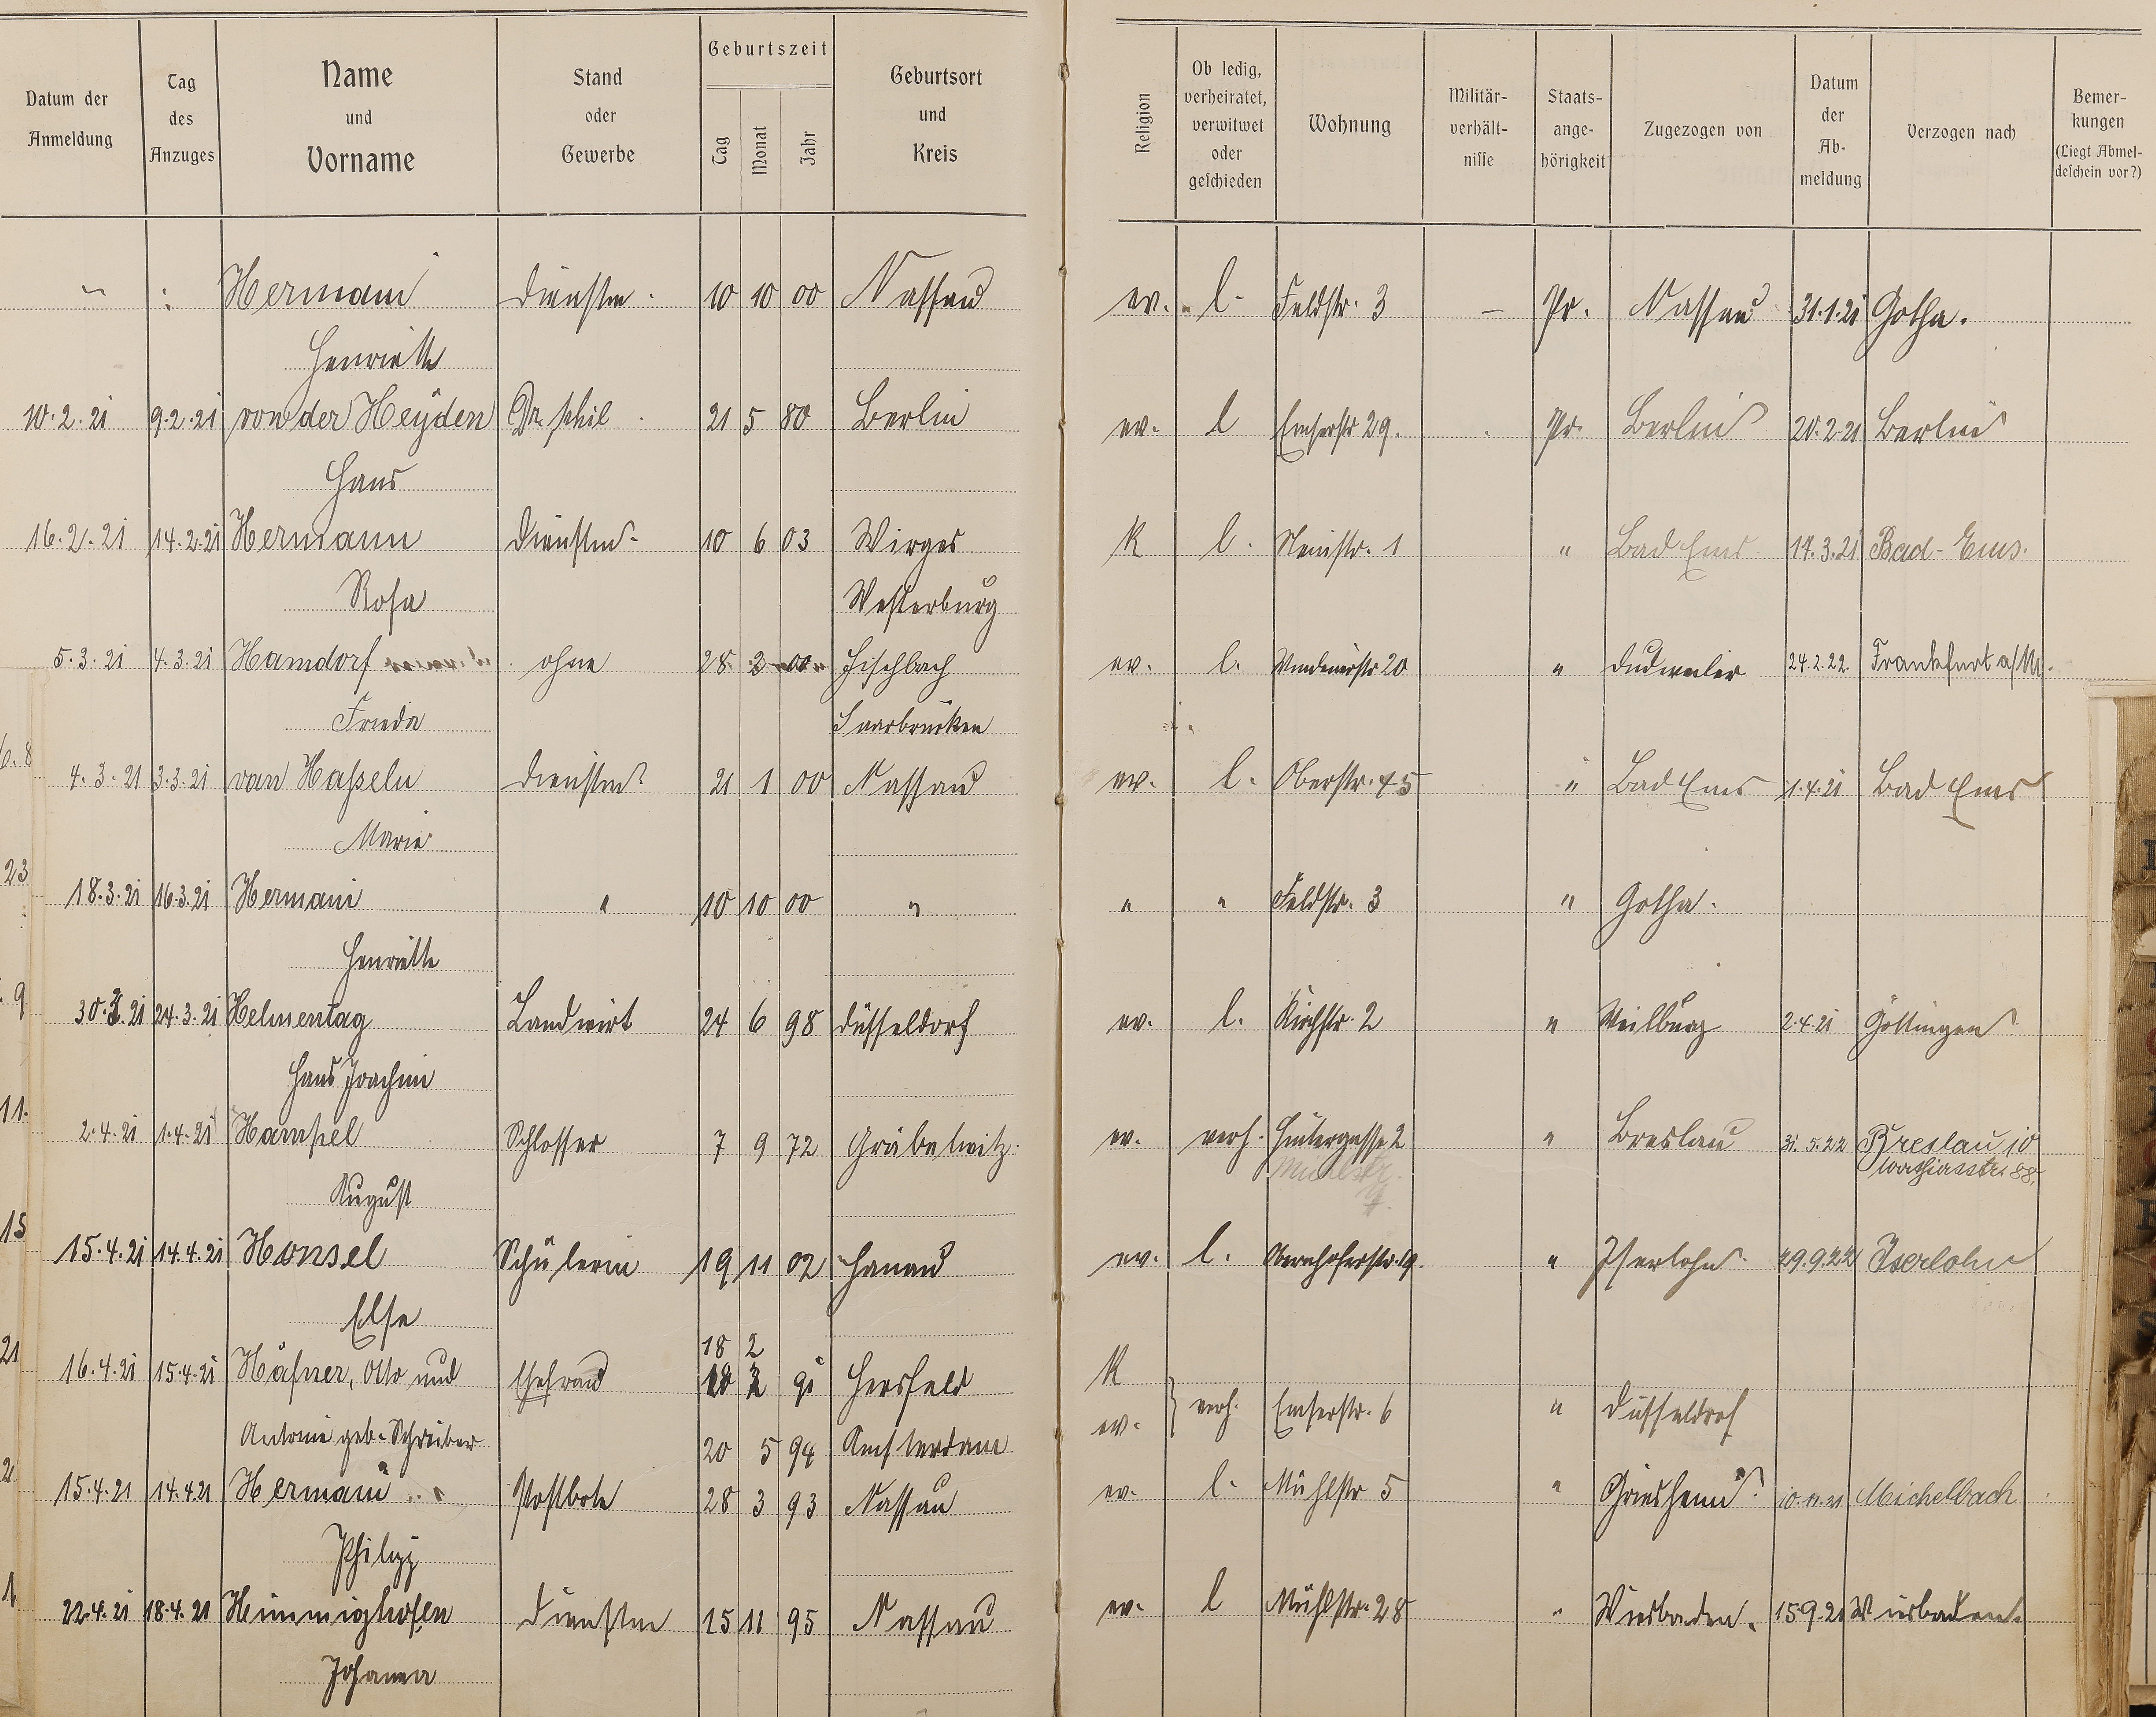 Datum der Anmeldung | Tag des Anzuges | Name und Vorname | Stand oder Gewerbe | Geburtszeit Tag Monat Jahr | Geburtsort und Kreis | Religion | Ob ledig, verheiratet, verwitwet oder geschieden | Wohnung | Militär-verhält-nisse | Staats-ange-hörigkeit | Zugezogen von | Datum der Ab-meldung | Verzogen nach | Bemer-kungen (Liegt Abmel-deschein vor?)
" | " | Hermani | Dienstm. | 10 | 10 | 00 | Nassau | ev. | l. | Feldstr. 3 | – | Pr. | Nassau | 31.1.21 | Gotha.
Henriette
10.2.21 | 9.2.21 | von der Heyden | Dr. phil | 21 | 5 | 80 | Berlin | ev. | l | Emserstr 29. | Pr. | Berlin | 20.2.21 | Berlin
Hans
16.2.21 | 14.2.21 | Hermann | Dienstm. | 10 | 6 | 03 | Wirges | K | l. | " | Bad Ems | 14.3.21 | Bad-Ems.
Rosa | Westerburg
5.3.21 | 4.3.21 | Hamdorf | ohne | 28 | 2 | 00 | Fischbach | ev. | l. | " | Dudweiler | 24.2.22. | Frankfurt a/M.
Frieda | Saarbrücken
4.3.21 | 3.3.21 | van Hasseln | Dienstm. | 21 | 1 | 00 | Nassau | ev. | l. | Oberstr. 45 | " | Bad Ems | 1.4.21 | Bad Ems
Marie
18.3.21 | 16.3.21 | Hermani | " | 10 | 10 | 00 | " | " | " | Feldstr. 3 | " | Gotha.
Henriette
30.3.21 | 24.3.21 | Helmentag | Landwirt | 24 | 6 | 98 | Düsseldorf | ev. | l. | Kirchstr. 2 | " | Weilburg | 2.4.21 | Göttingen
Hans Joachim
2.4.21 | 1.4.21 | Hampel | Schlosser | 7 | 9 | 72 | Gräbelwitz | ev. | verh. | Hintergasse 2 | " | Breslau | 31.5.22 | Breslau 10
August | Mühlstr. | 88.
15.4.21 | 14.4.21 | Hensel | Schülerin | 19 | 11 | 02 | Hanau | ev. | l. | Obernhoferstr. 19. | " | Iserlohn | 29.9.22 | Iserlohn
Else
18 | 2
16.4.21 | 15.4.21 | Häfner, Otto und | Ehefrau | 91 | Hersfeld | K | verh. | Emserstr. 6 | " | Düsseldorf
Antonie geb. Schreiber | 20 | 5 | 94 | Amsterdam | ev.
15.4.21 | 14.4.21 | Hermani | Postbote | 28 | 3 | 93 | Nassau | ev. | l. | Mühlstr 5 | " | Griesheim | Michelbach
Philipp
22.4.21 | 18.4.21 | Himmighofen | Dienstm | 15 | 11 | 95 | Nassau | ev. | l | Mühlstr. 28 | " | Wiesbaden. | 15.9.21 | Wiesbaden.
Johanna